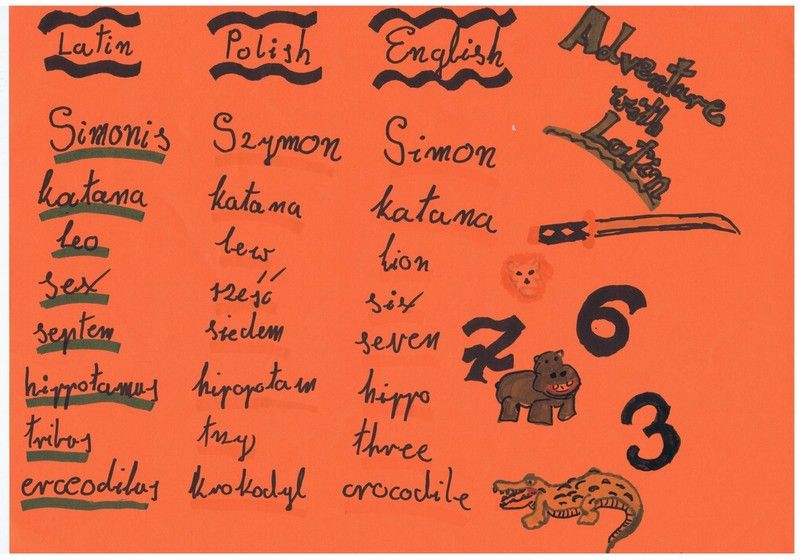 Latin Polish English
Adventure
with
Latin
Simonis Szymon Simon
katana katana katana
leo lew lion
sex sześć six
6
septem siedem seven
7
hippotamus hipopotam hippo
tribus trzy three
3
erceodilus krokodyl crocodile